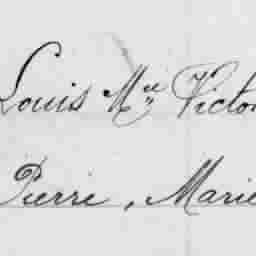 Louis Mie Victor
Pierre, Marie